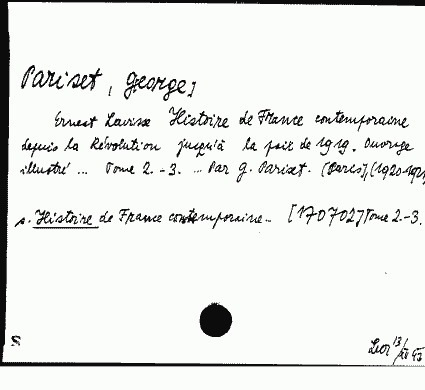 Pariset, George]
Ernest Lavisse Histoire de France contemporaine
depuis la Révolution jusqu'à la paix de 1919. Ouvrage
illustré ... Tome 2.-3. ... Par G. Pariset. (Paris), (1920-1921
s. Histoire de France contemporaine.. [170702] Tome 2.-3.
S
13/